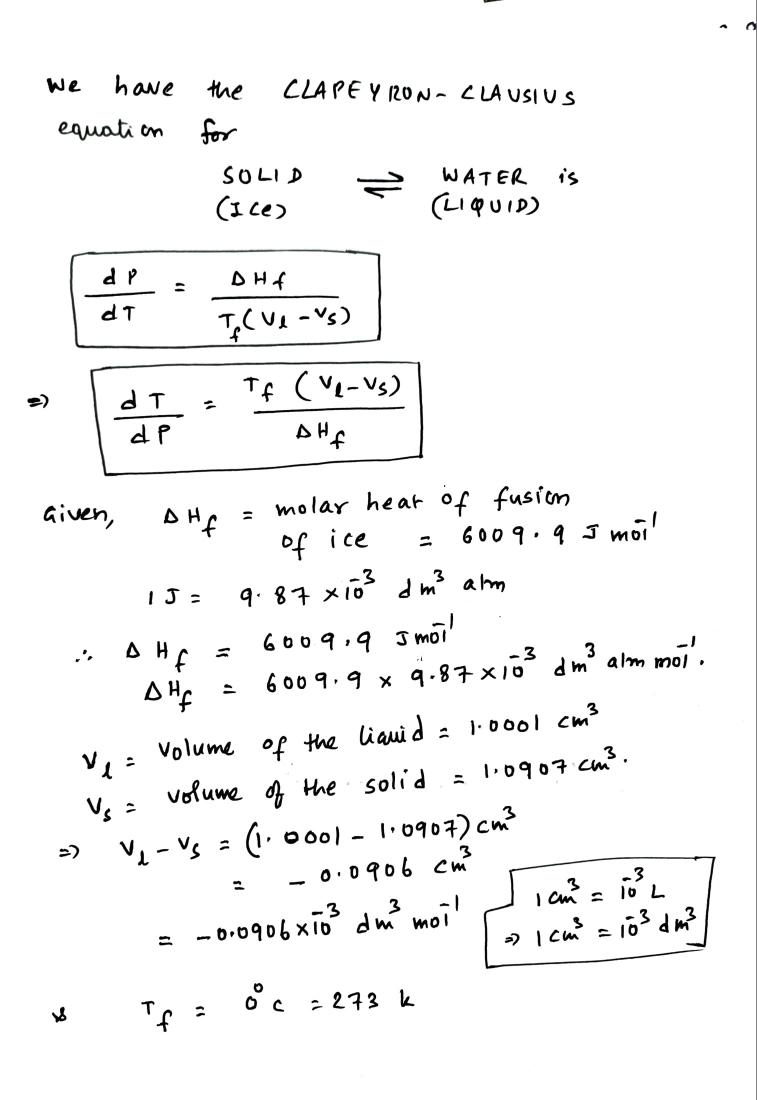 We have the CLAPEYRON- CLAUSIUS
equation for
SOLID ⇌ WATER is
(Ice) (LIQUID)
dP/dT = ΔHf / Tf(Vl - Vs)
=> dT/dP = Tf (Vl - Vs) / ΔHf
Given, ΔHf = molar heat of fusion
of ice = 6009.9 J mol⁻¹
1 J = 9.87 × 10⁻³ dm³ atm
∴ ΔHf = 6009.9 J mol⁻¹
ΔHf = 6009.9 × 9.87 × 10⁻³ dm³ atm mol⁻¹.
Vl = Volume of the liquid = 1.0001 cm³
Vs = volume of the solid = 1.0907 cm³.
=> Vl - Vs = (1.0001 - 1.0907) cm³
= - 0.0906 cm³
= - 0.0906 × 10⁻³ dm³ mol⁻¹
1 cm³ = 10⁻³ L
=> 1 cm³ = 10⁻³ dm³
& Tf = 0°C = 273 k